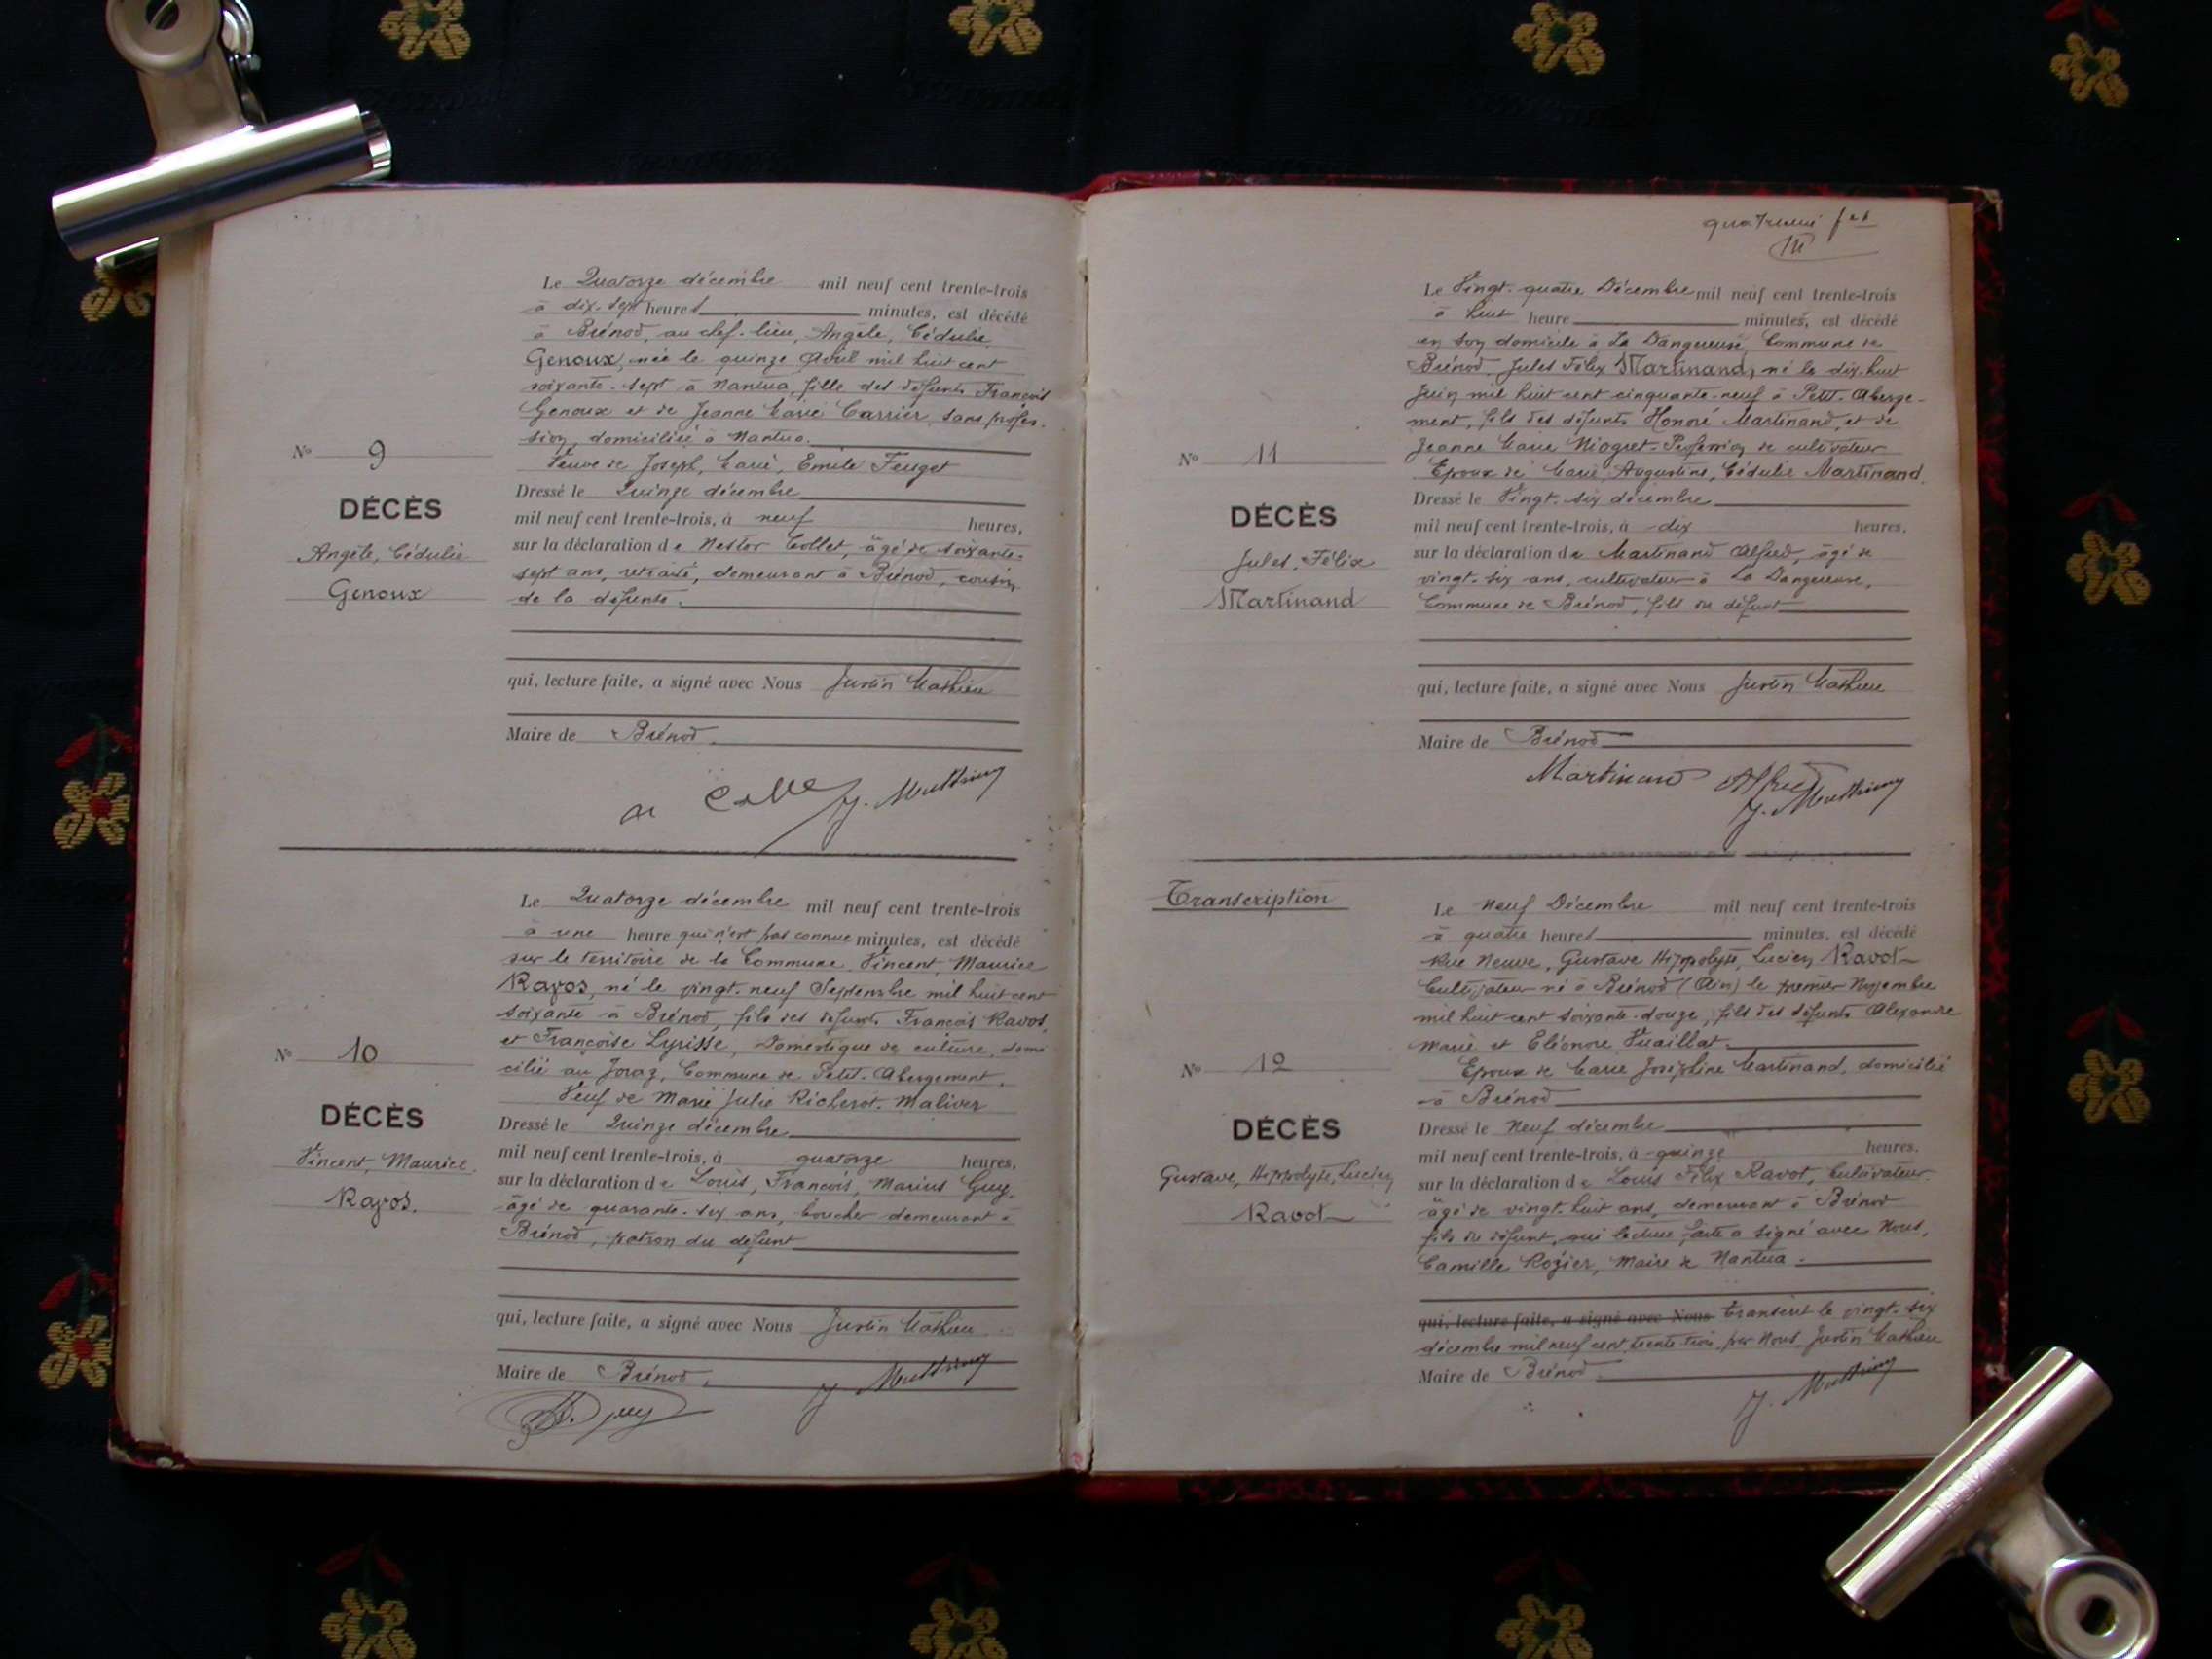 Le Quatorze décembre mil neuf cent trente-trois
à dix-sept heures minutes, est décédé
à Brénod, au chef-lieu, Angèle, Cédulie
Genoux, née le quinze Avril mil huit cent
soixante-sept à Nantua, fille des défunts François
Genoux et de Jeanne Marie Carrier, sans profes-
sion, domiciliée à Nantua.
Veuve de Joseph, Marie, Emile Feuget
Dressé le Quinze décembre
mil neuf cent trente-trois, à neuf heures,
sur la déclaration de Nestor Collet, âgé de soixante-
sept ans, retraité, demeurant à Brénod, cousin
de la défunte.
qui, lecture faite, a signé avec Nous Justin Mathieu
Maire de Brénod.
J. Mathieu
No 9
DÉCÈS
Angèle, Cédulie
Genoux
Le Quatorze décembre mil neuf cent trente-trois
à une heure qui n'est pas connue minutes, est décédé
sur le territoire de la Commune, Vincent, Maurice
Ravos, né le vingt-neuf Septembre mil huit cent
soixante à Brénod, fils des défunts François Ravos,
et Françoise Lyrisse, Domestique de culture, domi
cilié au Joraz, Commune de Petit-Abergement.
Veuf de Marie Julie Richerot-Maliver
Dressé le Quinze décembre
mil neuf cent trente-trois, à quatorze heures,
sur la déclaration de Louis, François, Marius Guy,
âgé de quarante-six ans, boucher demeurant à
Brénod, patron du défunt
qui, lecture faite, a signé avec Nous Justin Mathieu
Maire de Brénod.
J. Mathieu
Guy
No 10
DÉCÈS
Vincent, Maurice,
Ravos.
Le Vingt-quatre Décembre mil neuf cent trente-trois
à huit heure minutes, est décédé
en son domicile à La Dangereuse, Commune de
Brénod, Jules Félix Martinand, né le dix-huit
Juin mil huit cent cinquante-neuf à Petit-Aberge-
ment, fils des défunts Honoré Martinand, et de
Jeanne Marie Niogret-Profession de cultivateur
Epoux de Marie, Augustine, Cédulie Martinand.
Dressé le Vingt-six décembre
mil neuf cent trente-trois, à dix heures,
sur la déclaration de Martinand Alfred, âgé de
vingt-six ans, cultivateur à La Dangereuse,
Commune de Brénod, fils du défunt
qui, lecture faite, a signé avec Nous Justin Mathieu
Maire de Brénod
Martinand Alfred
J. Mathieu
No 11
DÉCÈS
Jules, Félix
Martinand
Transcription
Le neuf Décembre mil neuf cent trente-trois
à quatre heures minutes, est décédé
Rue Neuve, Gustave Hippolyte, Lucien Ravot
Cultivateur né à Brénod (Ain) le premier Novembre
mil huit cent soixante-douze, fils des défunts Alexandre
Marie et Eléonore Vuaillat.
Epoux de Marie Joséphine Martinand, domicilié
à Brénod
Dressé le Neuf décembre
mil neuf cent trente-trois, à quinze heures,
sur la déclaration de Louis Félix Ravot, Cultivateur
âgé de vingt-huit ans, demeurant à Brénod
fils du défunt, qui lecture faite a signé avec Nous,
Camille Rozier, Maire de Nantua.
qui, lecture faite, a signé avec Nous Transcrit le vingt-six
décembre mil neuf cent trente trois, par Nous, Justin Mathieu
Maire de Brénod
J. Mathieu
No 12
DÉCÈS
Gustave, Hippolyte, Lucien
Ravot